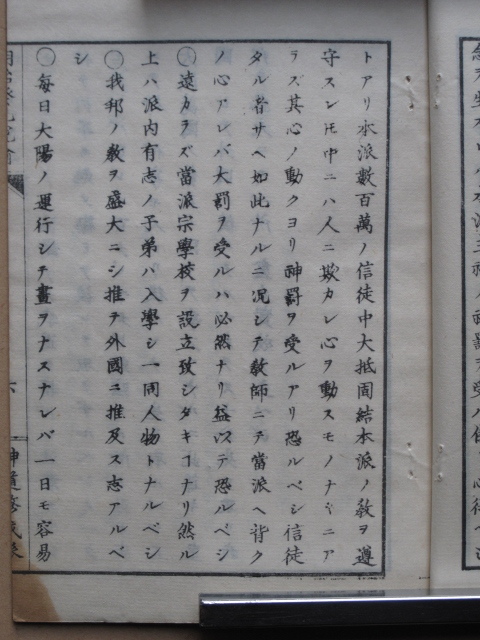 トアリ本派數百萬ノ信徒中大抵固結本派ノ教ヲ遵
守スレ𪜈中ニハ人ニ欺カレ心ヲ動スモノナキニア
ラズ其心ノ動クヨリ神罰ヲ受ルアリ恐ルベシ信徒
タル者サヘ如此ナルニ况シテ教師ニテ當派ヘ背ク
ノ心アレバ大罰ヲ受ルハ必然ナリ益以テ恐ルベシ
◯遠カラズ當派宗學校ヲ設立致シタキヿナリ然ル
上ハ派内有志ノ子弟ハ入學シ一同人物トナルベシ
◯我邦ノ教ヲ盛大ニシ推テ外國ニ推及ス志アルベ
シ
◯毎日大陽ノ運行シテ晝ヲナスナレバ一日モ容易
六
神道